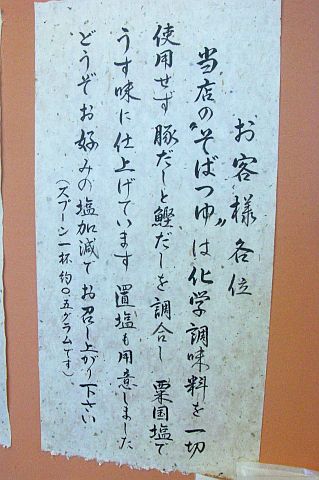 お客様各位
当店の〝そばつゆ〟は化学調味料を一切
使用せず豚だしと鰹だしを調合し粟国塩で
うす味に仕上げています置塩も用意しました
どうぞお好みの塩加減でお召し上がり下さい
(スプーン一杯約〇.五グラムです)